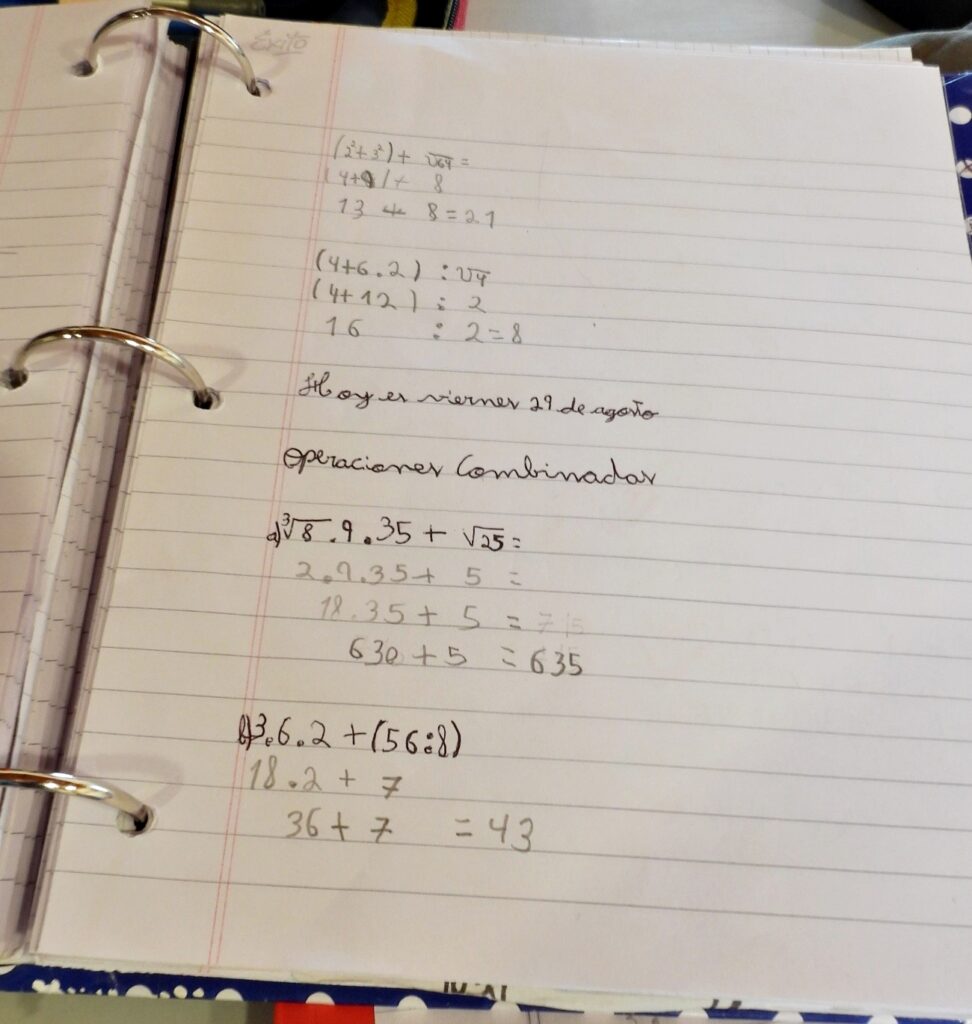 Éxito
(2²+3²)+ √64 =
(4+9)+ 8
13 + 8=21
(4+6.2) : √4
(4+12) : 2
16 : 2=8
Hoy es viernes 29 de agosto
Operaciones Combinadas
a) ³√8 .9.35 + √25 =
2.9.35+ 5 =
18.35 + 5 =
630 +5 = 635
b) 3.6.2 +(56:8)
18.2 + 7
36 + 7 = 43